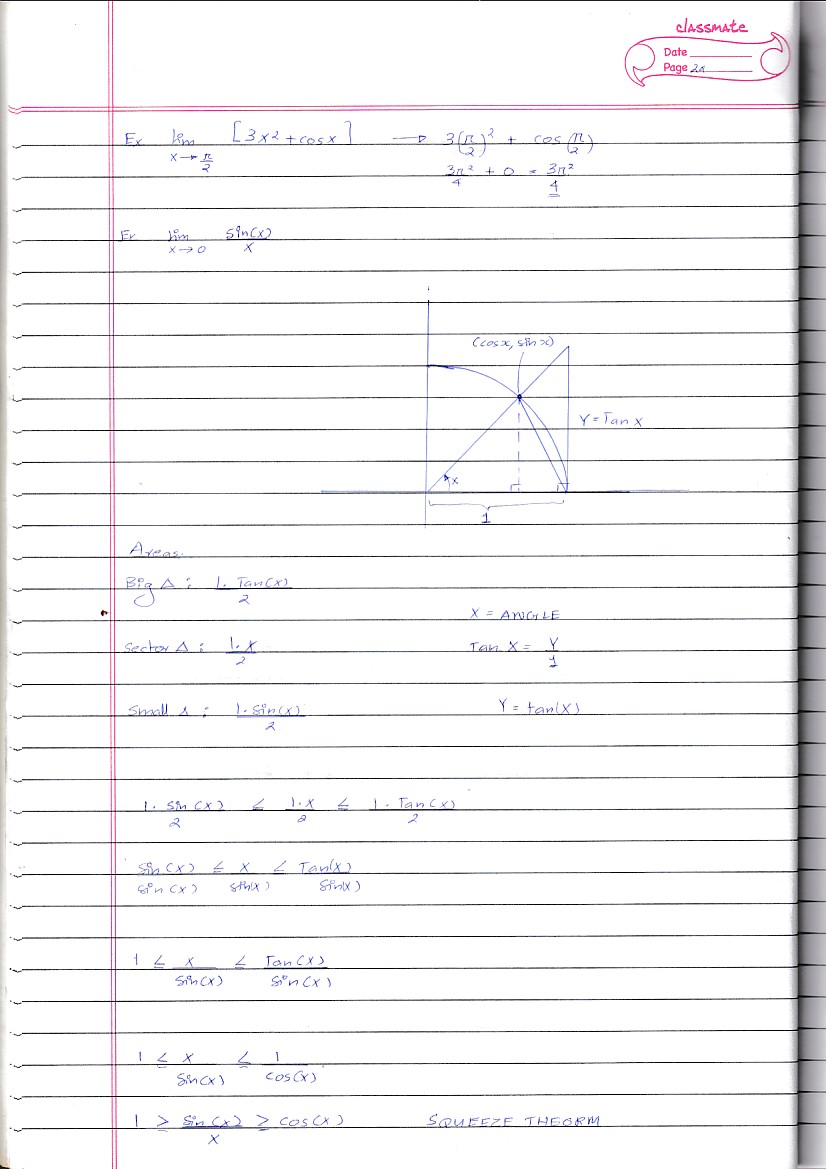 classmate
Date
Page
Ex lim x→π/2 [3x² + cosx] → 3(π/2)² + cos(π/2)
3π²/4 + 0 = 3π²/4
Ex lim x→0 sin(x)/x
(cosx, sinx)
Y = Tan X
x
1
Areas.
Big Δ : 1. Tan(x)/2
X = ANGLE
Sector Δ : 1.x/2
Tan X = Y/1
Small Δ : 1.sin(x)/2
Y = tan(X)
1. sin(x)/2 ≤ 1.x/2 ≤ 1. Tan(x)/2
sin(x)/sin(x) ≤ x/sin(x) ≤ Tan(x)/sin(x)
1 ≤ x/sin(x) ≤ Tan(x)/sin(x)
1 ≤ x/sin(x) ≤ 1/cos(x)
1 ≥ sin(x)/x ≥ cos(x) SQUEEZE THEORM